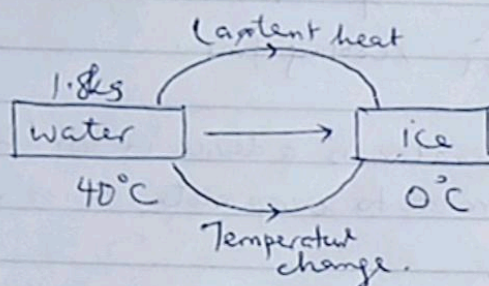 Laxtent heat
1.8kg
water
ice
40°C
0°C
Temperatur
change.